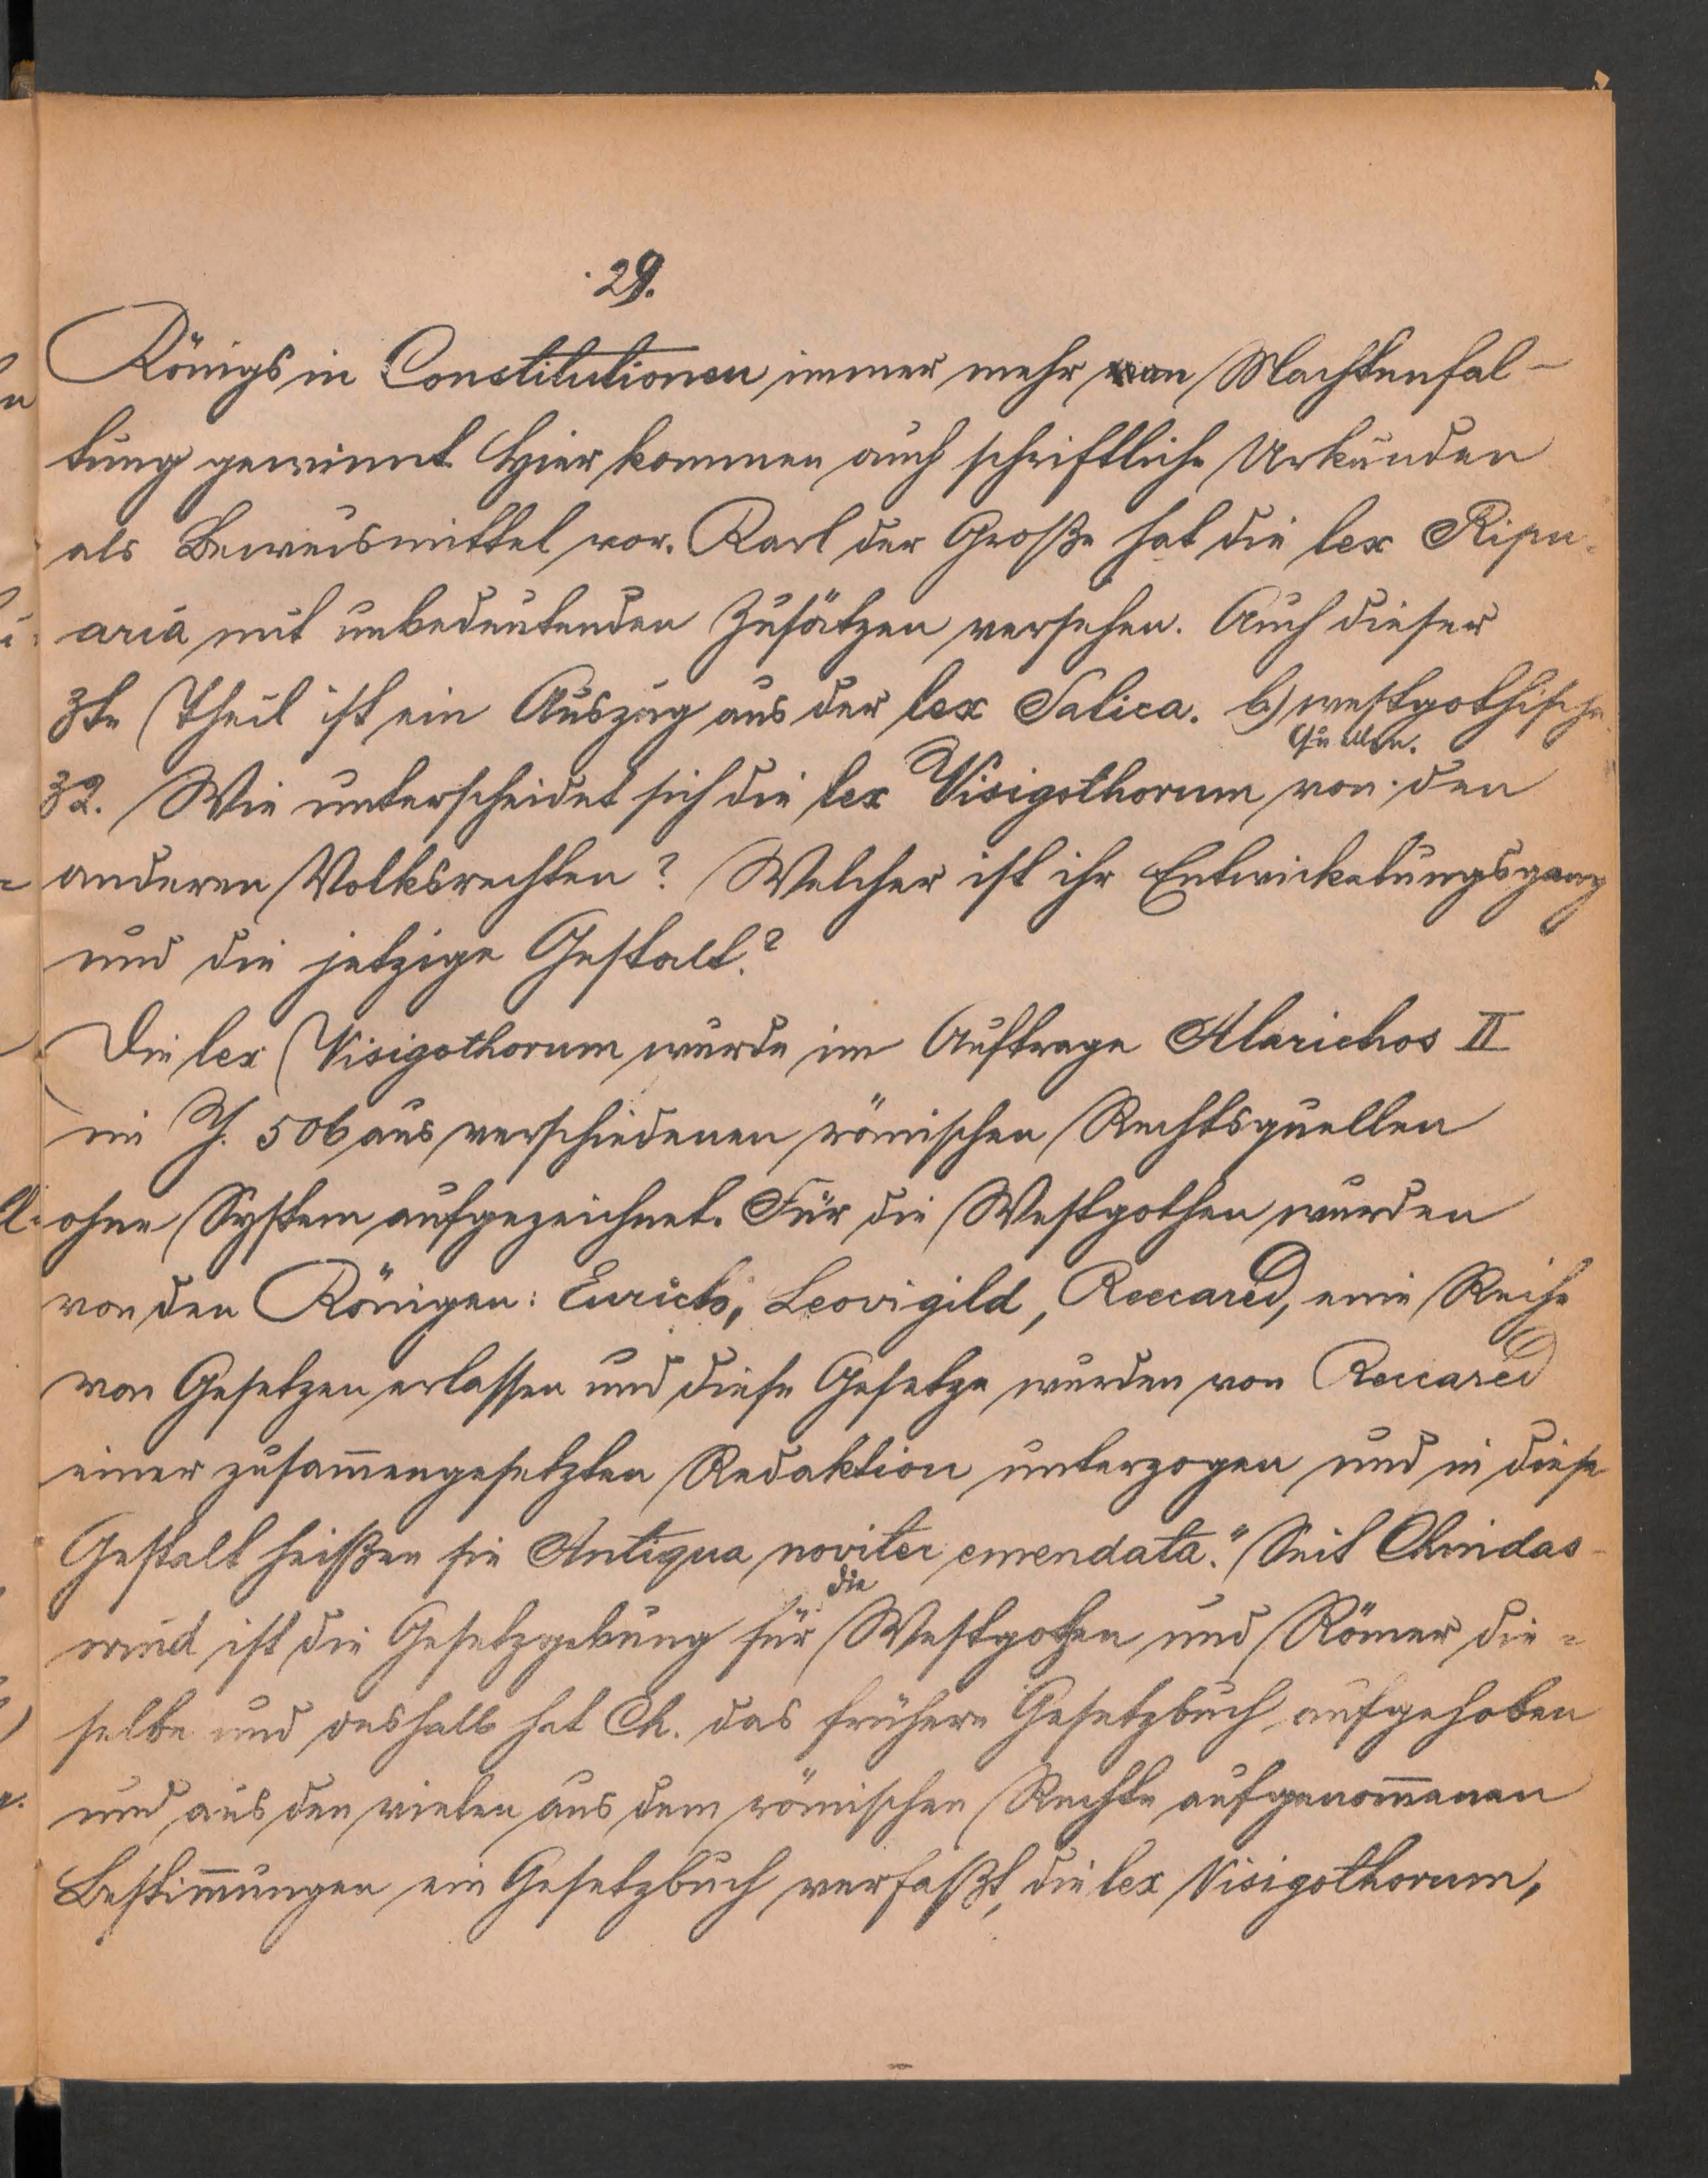 29.
Königs in Constitutionen immer mehr an Machtenfal-
tung gewinnt. Hier kommen auch schriftliche Urkunden
als Beweismittel vor. Karl der Große hat die lex Ripu-
aria mit unbedeutenden Zusätzen versehen. Auch dieser
3te Theil ist ein Auszug aus der lex Salica. b) westgothische
Quellen.
32. Wie unterscheidet sich die lex Visigothorum von den
anderen Volksrechten? Welcher ist ihr Entwickelungsgang
und die jetzige Gestalt?
Die lex Visigothorum wurde im Auftrage Alarichos II
im J. 506 aus verschiedenen römischen Rechtsquellen
ohne System aufgezeichnet. Für die Westgothen wurden
von den Königen: Eurich, Leovigild, Reccared, eine Reihe
von Gesetzen erlassen und diese Gesetze wurden von Reccared
einer zusam̄engesetzten Redaktion unterzogen und in diese
Gestalt heißen sie Antiqua noviter emendata." Seit Chindas-
die
wind ist die Gesetzgebung für Westgothen und Römer die=
selbe und deshalb hat Ch. das frühere Gesetzbuch aufgehoben
und aus den vielen aus dem römischen Rechte aufgenom̄enen
Bestim̄ungen ein Gesetzbuch verfaßt, die lex Visigothorum,